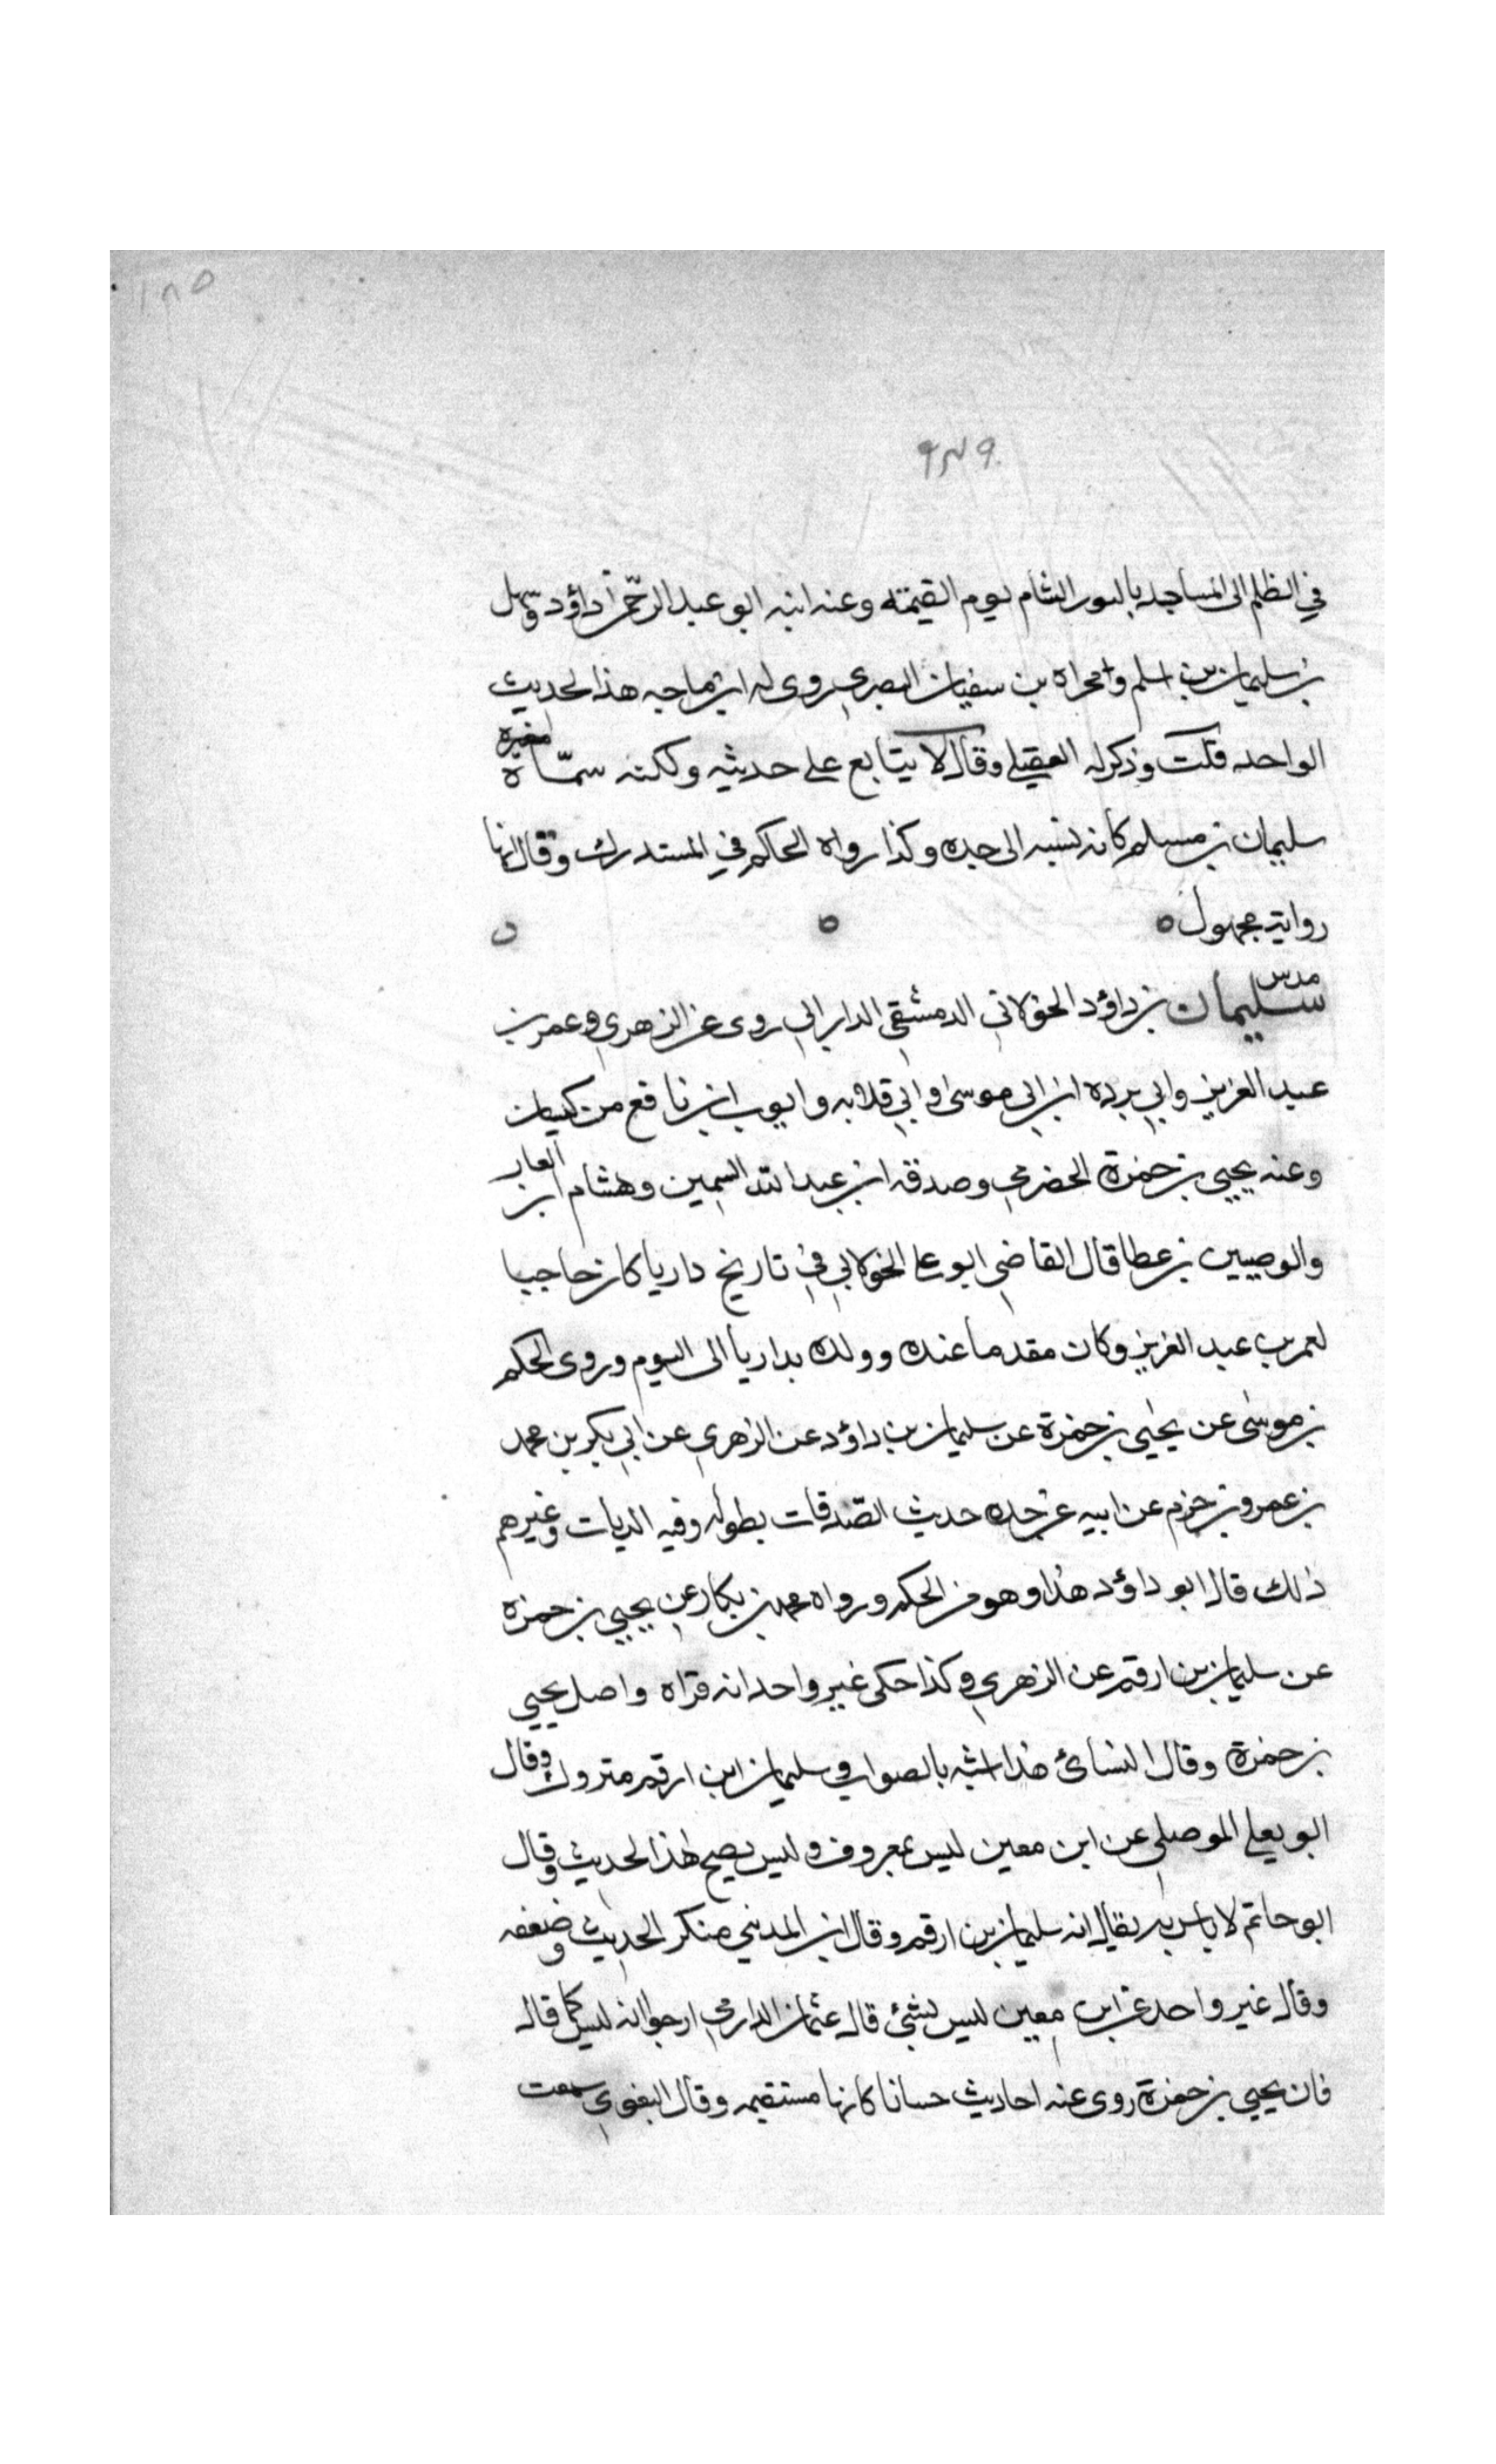 ١٨٥
٩٣٩
في الظلم الى المساجد بالنور التام يوم القيمة وعنه ابنه ابو عبد الرحمن داؤد وسهل
بن سليمان بن اسلم ومجراه بن سفيان البصري روى له ابن ماجه هذا الحديث
الواحد قلت وذكره العقيلي وقال لا يتابع على حديثه ولكنه سماه مغيره
سليمان بن مسلم كانه نسبه الى جده وكذا رواه الحاكم في المستدرك وقال انها
رواية مجهول ه ه ه
مدس
سليمان بن داؤد الخولاني الدمشقي الداراني روى عن الزهري وعمر بن
عبد العزيز وابي برده ابن ابي موسى وابي قلابه وايوب ابن نافع من كيسان
وعنه يحيى بن حمزة الحضرمي وصدقه ابن عبد الله السمين وهشام ابن الغاز
والوضين بن عطا قال القاضي ابو علي الخولاني في تاريخ داريا كان حاجبا
لعمر بن عبد العزيز وكان مقدما عنده وولده بداريا الى اليوم وروى الحكم
بن موسى عن يحيى بن حمزة عن سليمان بن داؤد عن الزهري عن ابي بكر بن محمد
بن عمرو بن حزم عن ابيه عن جده حديث الصدقات بطوله وفيه الديات وغيرهم
ذلك قال ابو داؤد هذا وهو من الحكم ورواه محمد بن بكار عن يحيى بن حمزه
عن سليمان بن ارقم عن الزهري وكذا حكى غير واحد انه قراه واصل يحيى
بن حمزة وقال النسائ هذا اشبه بالصواب وسليمان ابن ارقم متروك وقال
ابو يعلى الموصلي عن ابن معين ليس بمعروف وليس يصح هذا الحديث وقال
ابو حاتم لا باس به يقال انه سليمان بن ارقم وقال ابن المديني منكر الحديث وضعفه
وقال غير واحد عن ابن معين ليس بشئ قال عثمان الدارمي ارجو انه ليس كما قال
فان يحيى بن حمزة روى عنه احاديث حسانا كانها مستقيمه وقال البغوي سمعت